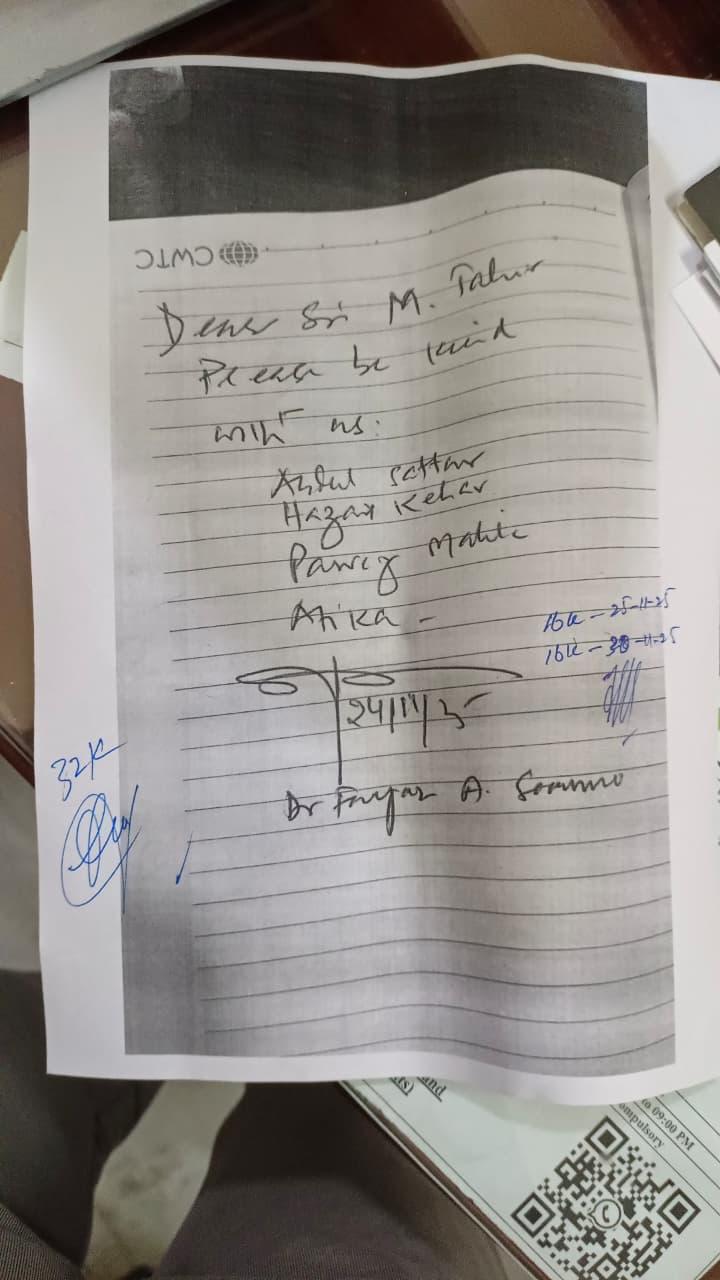 CWTC
Dear Sir M. Tahir
Please be kind
with us:
Abdul Sattar
Hazar Kehar
Parvez
Atika -
16k - 25-11-25
16k - 30-11-25
24/11/25
32k
Dr Fayaz A. Soomro
and
to 09:00 PM
ompulsory